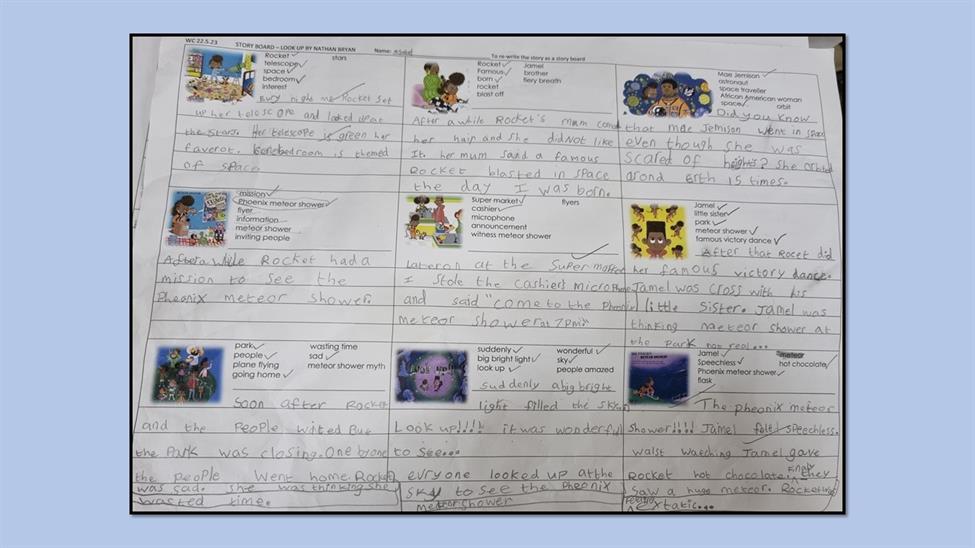 WC 22.5.23 STORY BOARD – LOOK UP BY NATHAN BRYAN Name: To re-write the story as a story board
Rocket
telescope
space
bedroom
interest
stars
Evry night me Rocket set
up her telescope and looked up at
the stars. Her telescope is green her
faverot. bedroom is themed
of space
Rocket
Famous
born
rocket
blast off
Jamel
brother
fiery breath
After a while Rocket's mum comd
her hair and she did Not like
It. her mum said a famous
Rocket blasted in space
the day I was born.
Mae Jemison
astronaut
space traveller
African American woman
space
orbit
Did you know
that mae Jemison went in space
even though she was
scared of heights? She orbited
arond Erth 15 times.
mission
Phoenix meteor shower
flyer
information
meteor shower
inviting people
After a while Rocket had a
mission to see the
Pheonix meteor shower.
Super market
cashier
microphone
announcement
witness meteor shower
flyers
Later on at the Supermarket
I stole the cashiers microphone
and said "come to the Pheonix
meteor shower at 7pm"
Jamel
little sister
park
meteor shower
famous victory dance
After that Rocet did
her famous victory dance.
Jamel was cross with his
little sister. Jamel was
thinking meteor shower at
the park not real...
park
people
plane flying
going home
wasting time
sad
meteor shower myth
Soon after Rocket
and the People wited But
the Park was closing. One by one
the people went home. Rocket
was sad. she was thinking she
wasted time.
suddenly
big bright light
look up
wonderful
sky
people amazed
suddenly a big bright
light filled the sky.
Look up!!!! it was wonderful
to see...
evryone looked up at the
sky to see the Pheonix
meteor shower
Jamel
Speechless
Phoenix meteor shower
flask
meteor
hot chocolate
The pheonix meteor
shower!!!! Jamel felt speechless.
walst watching Jamel gave
Rocket hot chocolate. they
saw a huge meteor. Rocket
extatic...